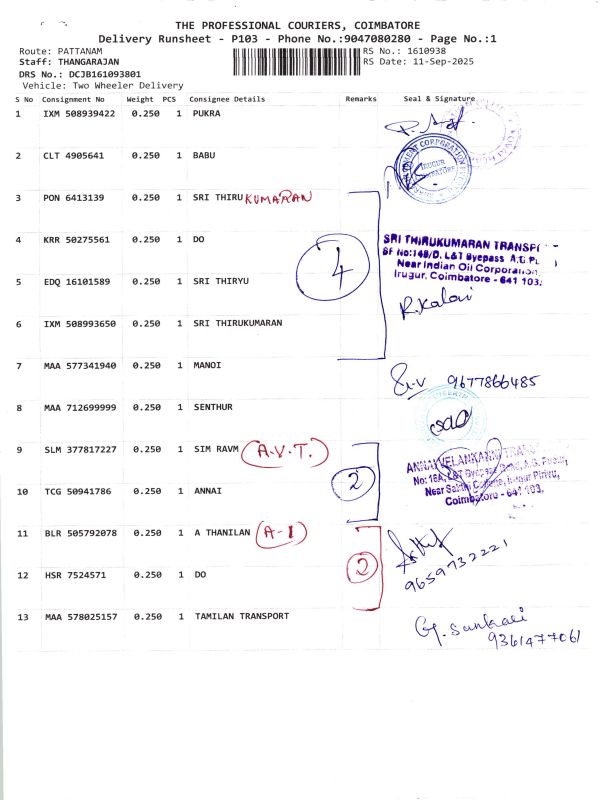 THE PROFESSIONAL COURIERS, COIMBATORE
Delivery Runsheet - P103 - Phone No.:9047080280 - Page No.:1
Route: PATTANAM
RS No.: 1610938
Staff: THANGARAJAN
RS Date: 11-Sep-2025
DRS No.: DCJB161093801
Vehicle: Two Wheeler Delivery
S No Consignment No Weight PCS Consignee Details Remarks Seal & Signature
1 IXM 508939422 0.250 1 PUKRA
2 CLT 4905641 0.250 1 BABU
3 PON 6413139 0.250 1 SRI THIRU KUMARAN
4 KRR 50275561 0.250 1 DO
4
SRI THIRUKUMARAN TRANSP
SF No:148/D, L&T Byepass
Near Indian Oil Corporation
Irugur, Coimbatore - 641 103.
5 EDQ 16101589 0.250 1 SRI THIRYU
R.Kalai
6 IXM 508993650 0.250 1 SRI THIRUKUMARAN
7 MAA 577341940 0.250 1 MANOI
9677866485
8 MAA 712699999 0.250 1 SENTHUR
9 SLM 377817227 0.250 1 SIM RAVM (A.V.T.)
2
ANNAI VELANKANNI TRANS
10 TCG 50941786 0.250 1 ANNAI
Coimbatore - 641 103.
11 BLR 505792078 0.250 1 A THANILAN (A-1)
2
9659732221
12 HSR 7524571 0.250 1 DO
13 MAA 578025157 0.250 1 TAMILAN TRANSPORT
9361477061